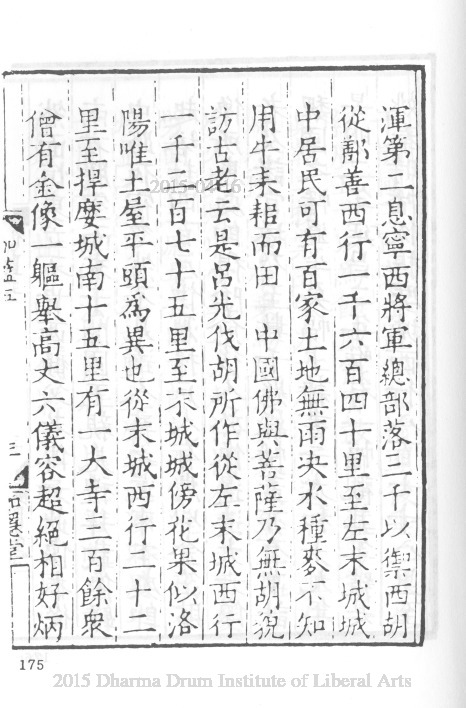 渾第二息寧西將軍總部落三千以禦西胡
從鄯善西行一千六百四十里至左末城城
中居民可有百家土地無雨決水種麥不知
用牛耒耜而田　中國佛與菩薩乃無胡貌
訪古老云是呂光伐胡所作從左末城西行
一千二百七十五里至末城城傍花果似洛
陽唯土屋平頭為異也從末城西行二十二
里至捍麼城南十五里有一大寺三百餘衆
僧有金像一軀舉高丈六儀容超絕相好炳
伽藍五
三
175
2015 Dharma Drum Institute of Liberal Arts